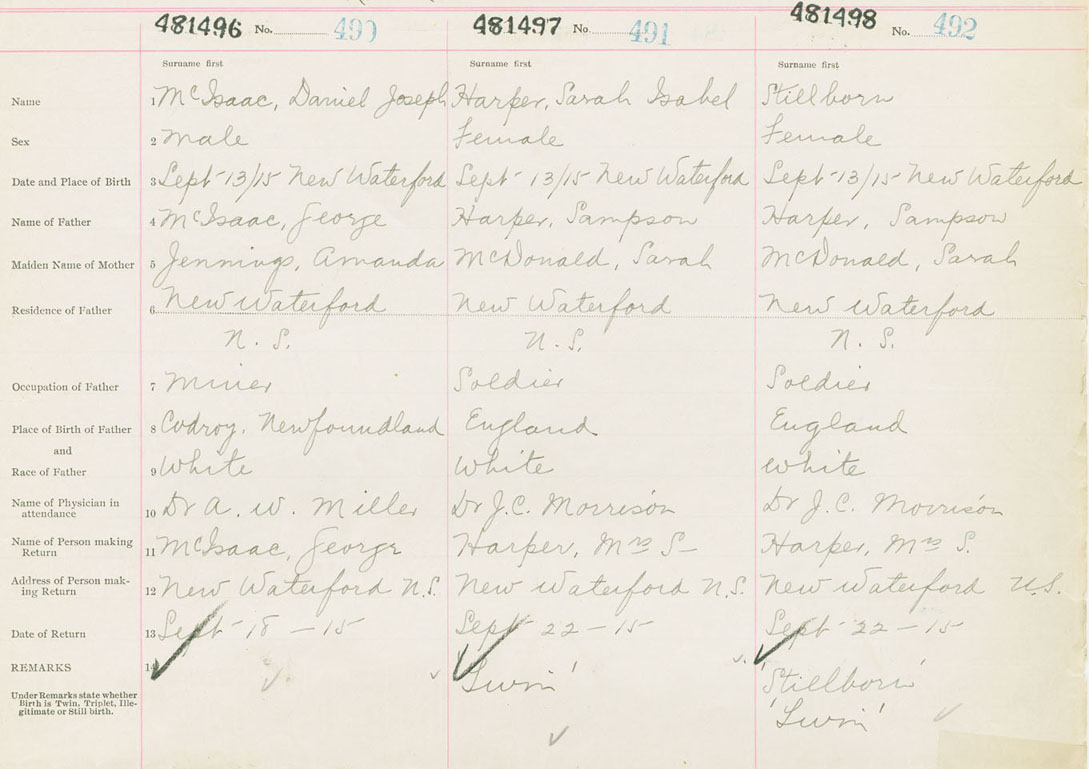 481496 No. 490 481497 No. 491 481498 No. 492
Surname first Surname first Surname first
Name 1 McIsaac, Daniel Joseph Harper, Sarah Isabel Stillborn
Sex 2 Male Female Female
Date and Place of Birth 3 Sept 13/15 New Waterford Sept 13/15 New Waterford Sept 13/15 New Waterford
Name of Father 4 McIsaac, George Harper, Sampson Harper, Sampson
Maiden Name of Mother 5 Jennings, Amanda McDonald, Sarah McDonald, Sarah
Residence of Father 6 New Waterford New Waterford New Waterford
N. S. N. S. N. S.
Occupation of Father 7 Miner Soldier Soldier
Place of Birth of Father 8 Codroy, Newfoundland England England
and
Race of Father 9 White White White
Name of Physician in
attendance 10 Dr A. W. Miller Dr J.C. Morrison Dr J.C. Morrison
Name of Person making
Return 11 McIsaac, George Harper, Mrs S- Harper, Mrs S.
Address of Person mak-
ing Return 12 New Waterford N.S. New Waterford N.S. New Waterford N.S.
Date of Return 13 Sept 18-15 Sept 22-15 Sept 22-15
REMARKS 14 'Twin' 'Stillborn'
Under Remarks state whether
Birth is Twin, Triplet, Ille-
gitimate or Still birth. 'Twin'